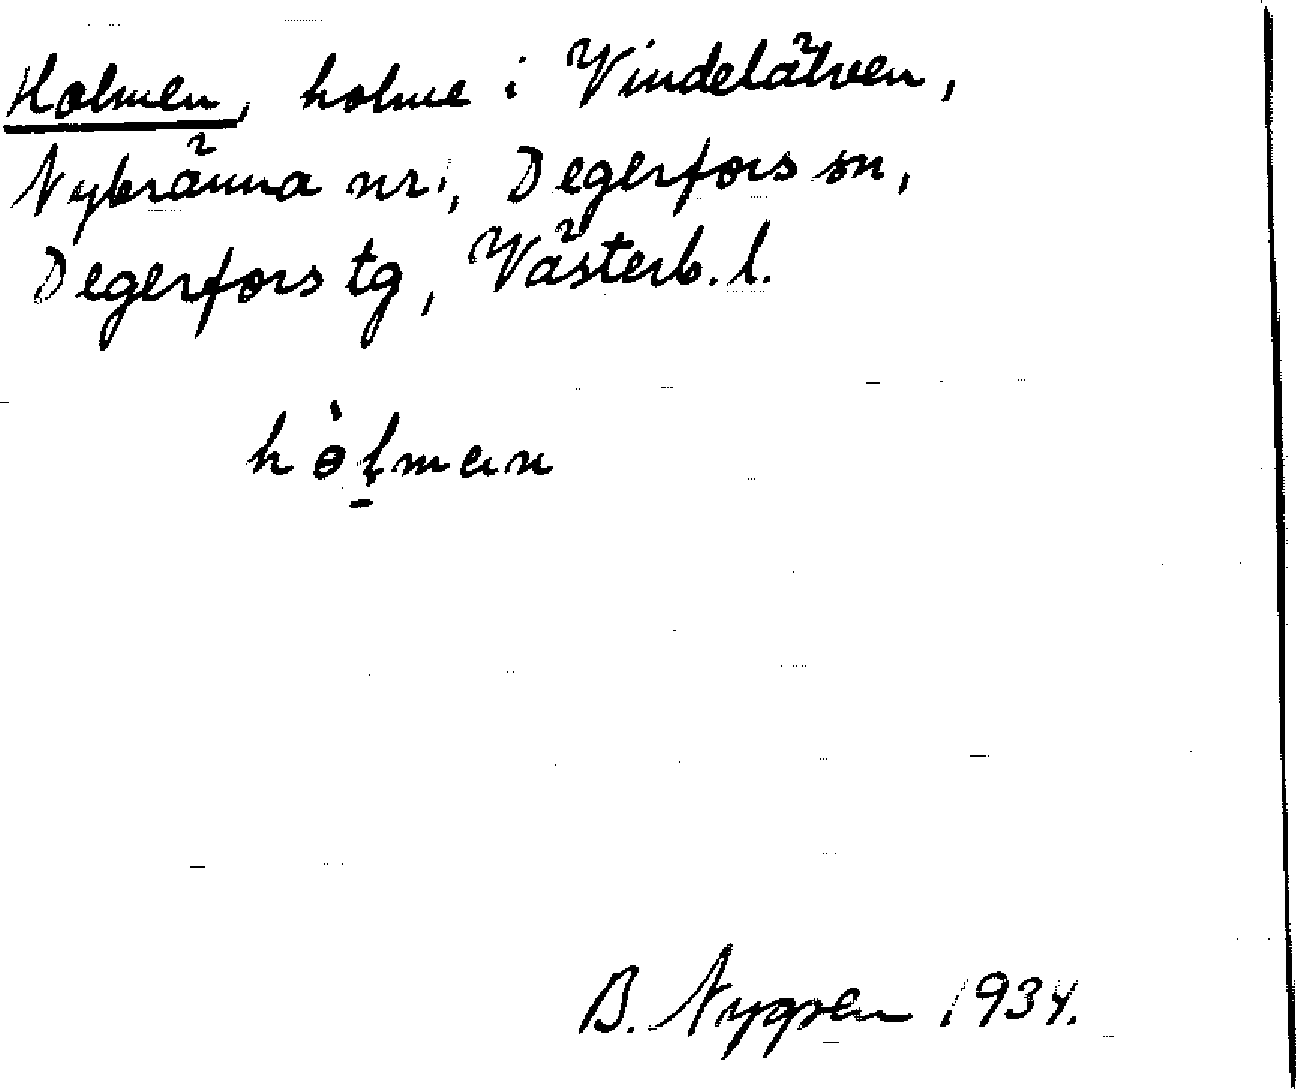 Holmen, holme i Vindelälven,
Nybränna nr 1, Degerfors sn,
Degerfors tg, Västerb. l.
hòlmen
B. Nygren 1934.